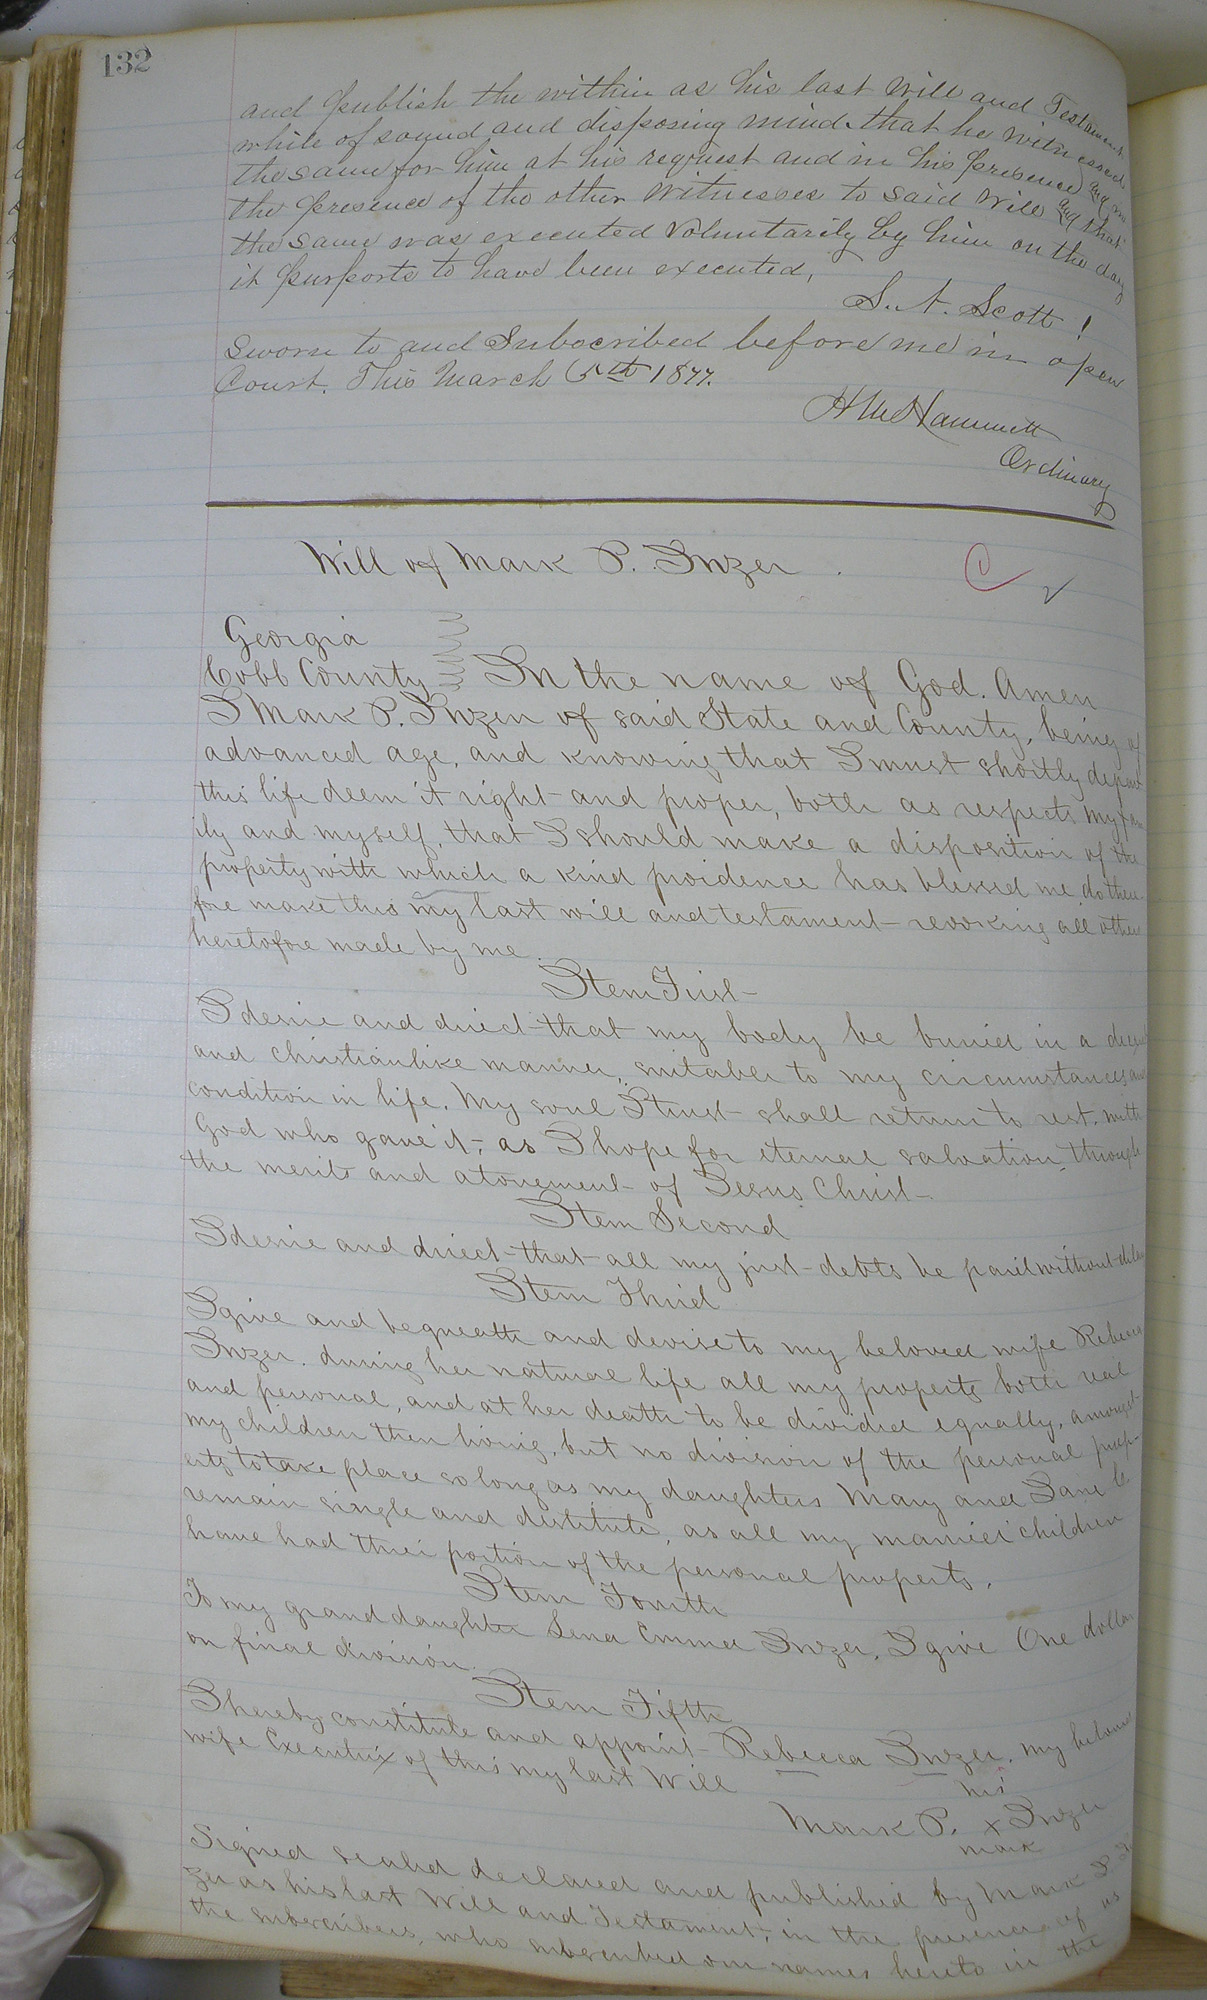 132
and publish the within as his last Will and Testament
while of sound and disposing mind. that he witnessed
the same for him at his request and in his presence and in
the presence of the other Witnesses to said Will and that
the same was executed voluntarily by him on the day
it purports to have been executed,
S. A. Scott!
Sworn to and Subscribed before me in open
Court. This March 5th 1877.
H M Hammett
Ordinary
Will of Mark P. Inzer.
C ✓
Georgia
Cobb County In the name of God. Amen
I Mark P. Inzer of said State and County, being of
advanced age, and knowing that I must shortly depart
this life deem it right and proper, both as respects my fam
ily and myself, that I should make a disposition of the
property with which a kind proidence has blessed me, do there
fore make this my last will and testament revoking all others
heretofore made by me.
Item First
I desire and direct that my body be buried in a decent
and Christianlike manner, suitable to my circumstances and
condition in life. My soul I trust shall return to rest, with
God who gave it, as I hope for eternal salvation, through
the merits and atonement of Jesus Christ
Item Second
I desire and direct that all my just debts be paid without delay
Item Third
I give and bequeath and devise to my beloved wife Rebecca
Inzer. during her natural life all my property both real
and personal, and at her death to be divided equally, amongst
my children then living, but no division of the personal prop-
erty to take place so long as my daughters Mary and Jane
remain single and destitute, as all my married children
have had their portion of the personal property.
Item Fourth
To my grand daughter Emmer Inzer, I give One dollar
on final division.
Item Fifth
I hereby constitute and appoint Rebecca Inzer, my beloved
wife Executrix of this my last Will
his
Mark P. x Inzer
mark
Signed sealed declared and published by Mark P. In
zer as his last Will and Testament, in the presence of us
the subscribers, who subscribed our names hereto in the